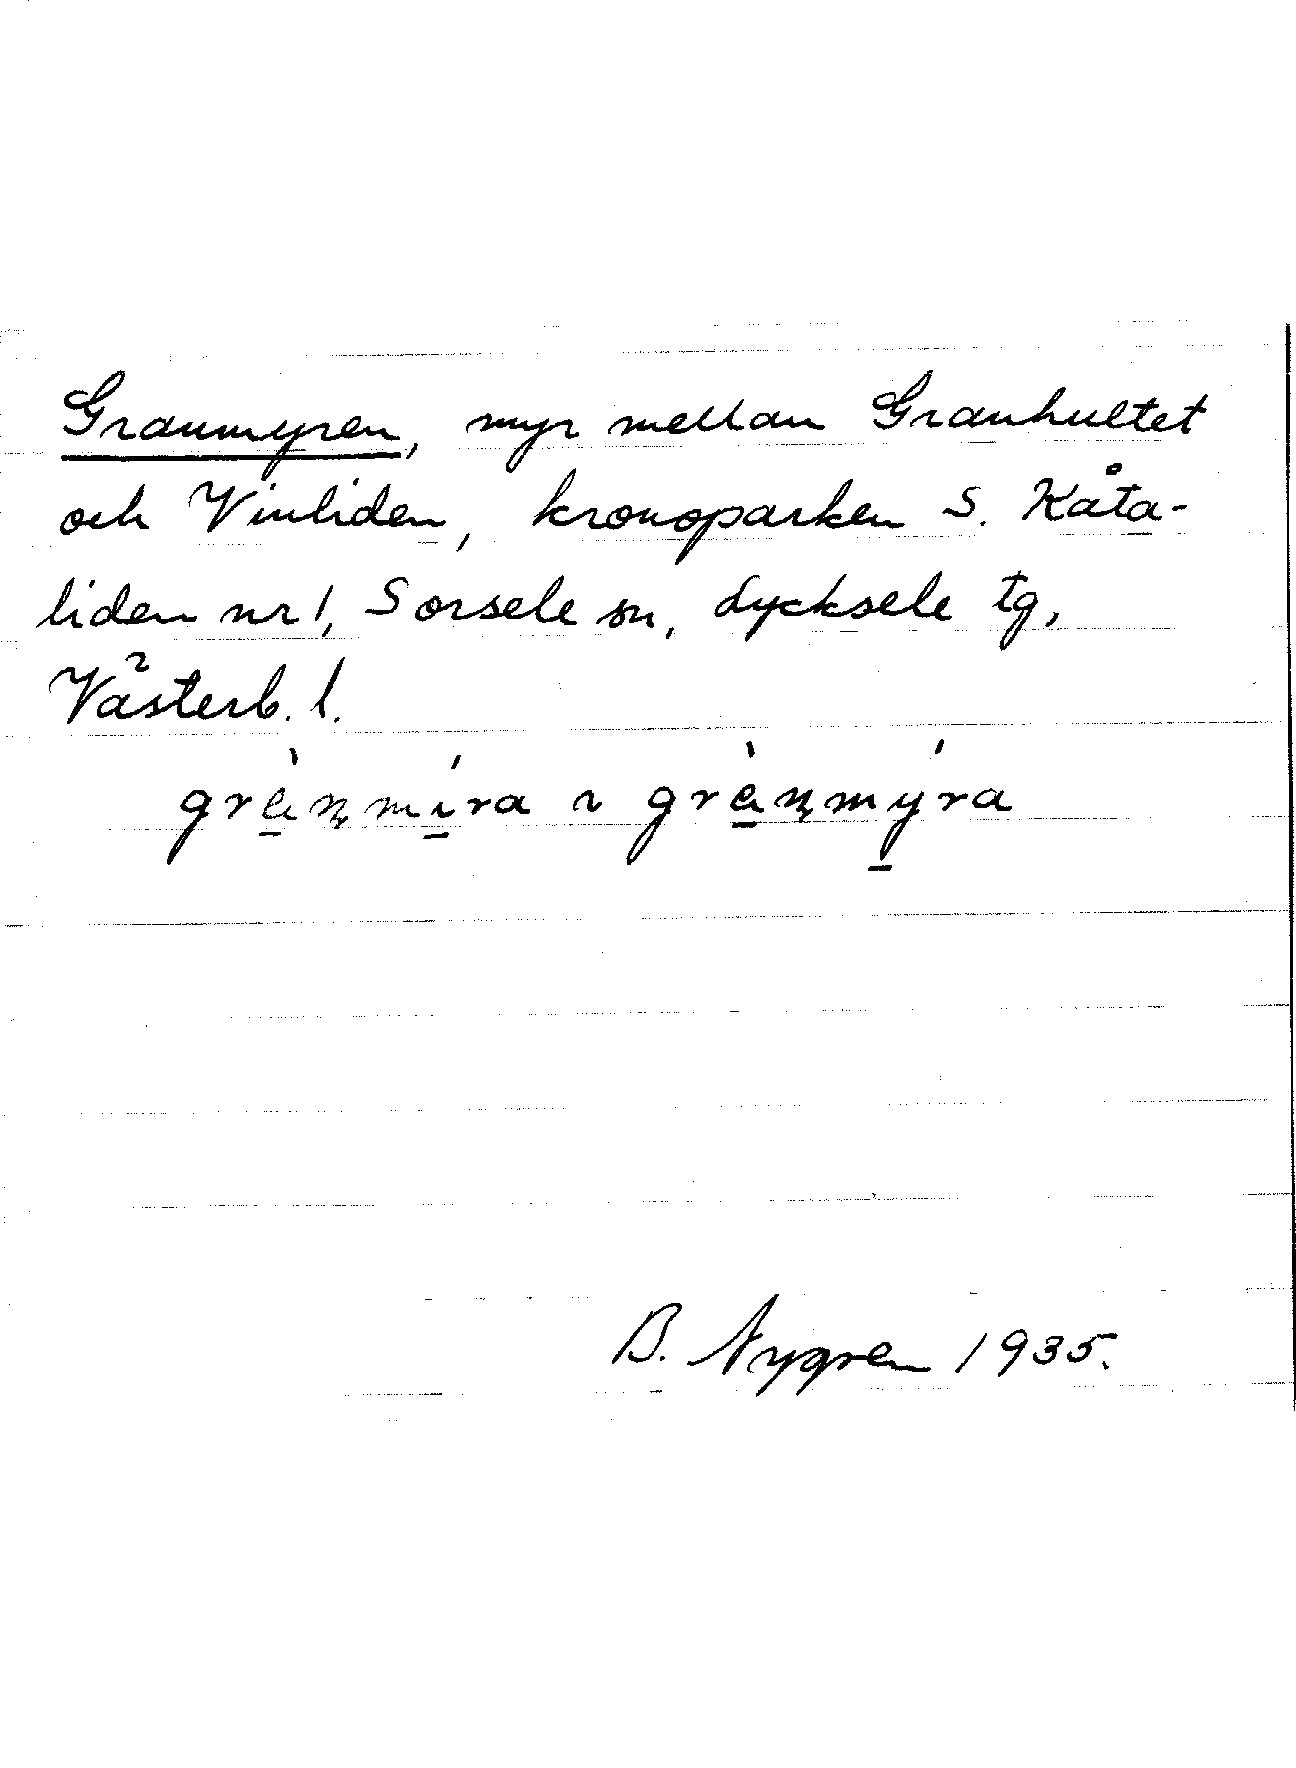 Granmyren, myr mellan Granhultet
och Vinliden, kronoparken S. Kåta-
liden nr 1, Sorsele sn, Lycksele tg,
Västerb. l.
grànmíra ~ grànmýra
B. Nygren 1935.